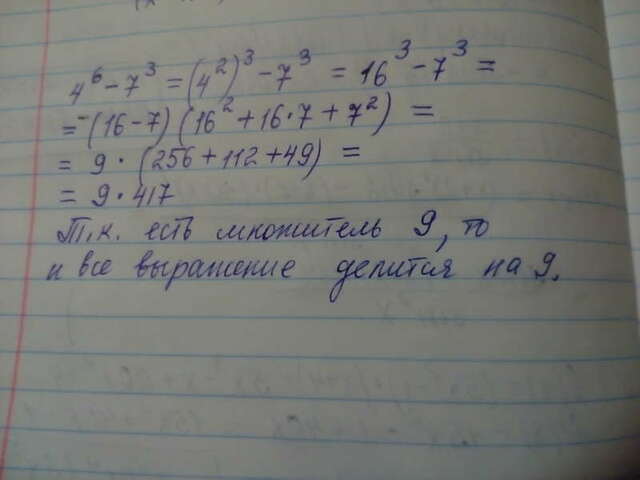 4⁶ - 7³ = (4²)³ - 7³ = 16³ - 7³ =
= (16 - 7) (16² + 16 · 7 + 7²) =
= 9 · (256 + 112 + 49) =
= 9 · 417
Т.к. есть множитель 9, то
и все выражение делится на 9.